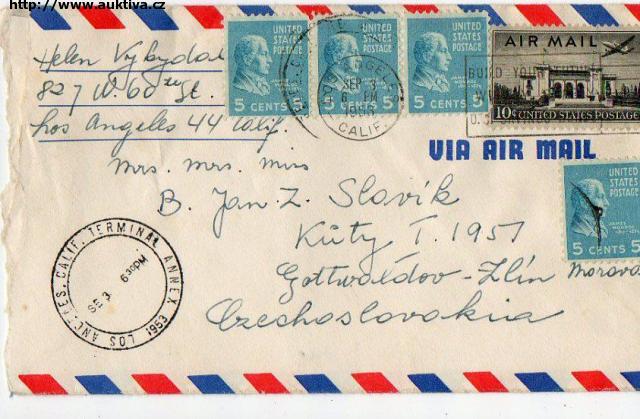 http://www.auktiva.cz
Helen Vybydal
827 W. 60 St.
Los Angeles 44 Calif.
UNITED STATES POSTAGE
5 CENTS 5
UNITED STATES POSTAGE
5 CENTS 5
UNITED STATES POSTAGE
5 CENTS 5
LOS ANGELES
SEP 3
CALIF.
AIR MAIL
10¢ UNITED STATES POSTAGE
BUILD YOUR
VIA AIR MAIL
UNITED STATES POSTAGE
JAMES MONROE
5 CENTS 5
Mrs. Mrs. Miss
B. Jan Z. Slavík
Kúty T. 1951
Gottwaldov-Zlín Morava
Czechoslovakia
LOS ANGELES, CALIF. TERMINAL ANNEX 1953
SEP 3 630PM